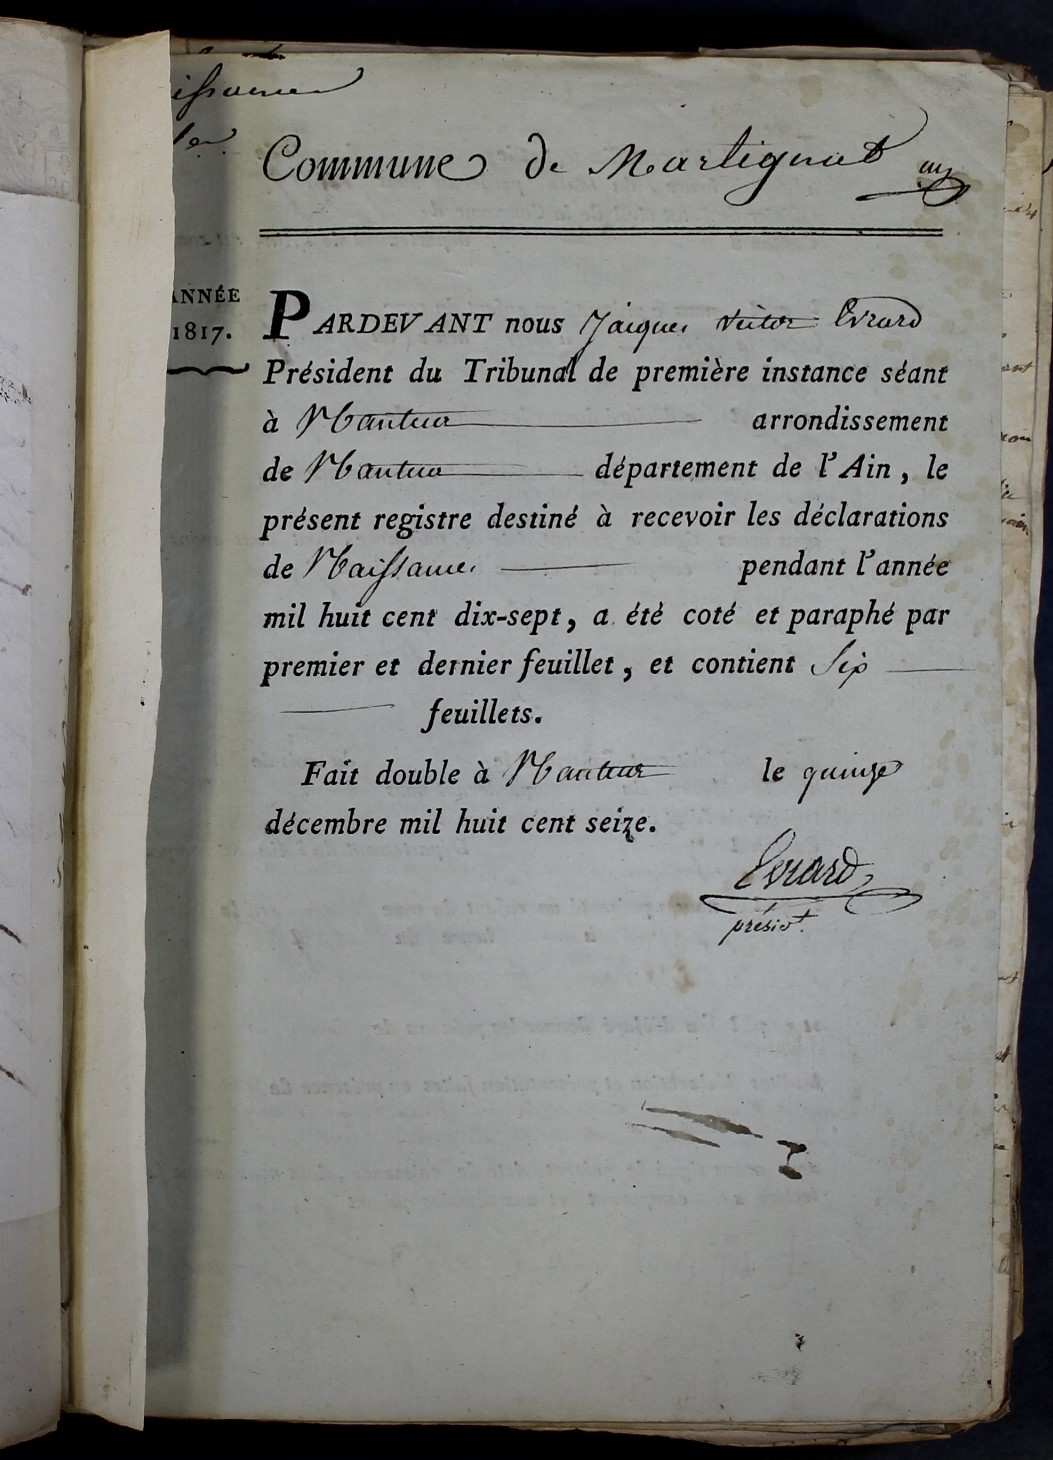 Commune de Martignat
ANNÉE
1817.
PARDEVANT nous Jacques Victor Evrard
Président du Tribunal de première instance séant
à Nantua arrondissement
de Nantua département de l'Ain, le
présent registre destiné à recevoir les déclarations
de Naissances pendant l'année
mil huit cent dix-sept, a été coté et paraphé par
premier et dernier feuillet, et contient Six
feuillets.
Fait double à Nantua le quinze
décembre mil huit cent seize.
Evrard
présidt.